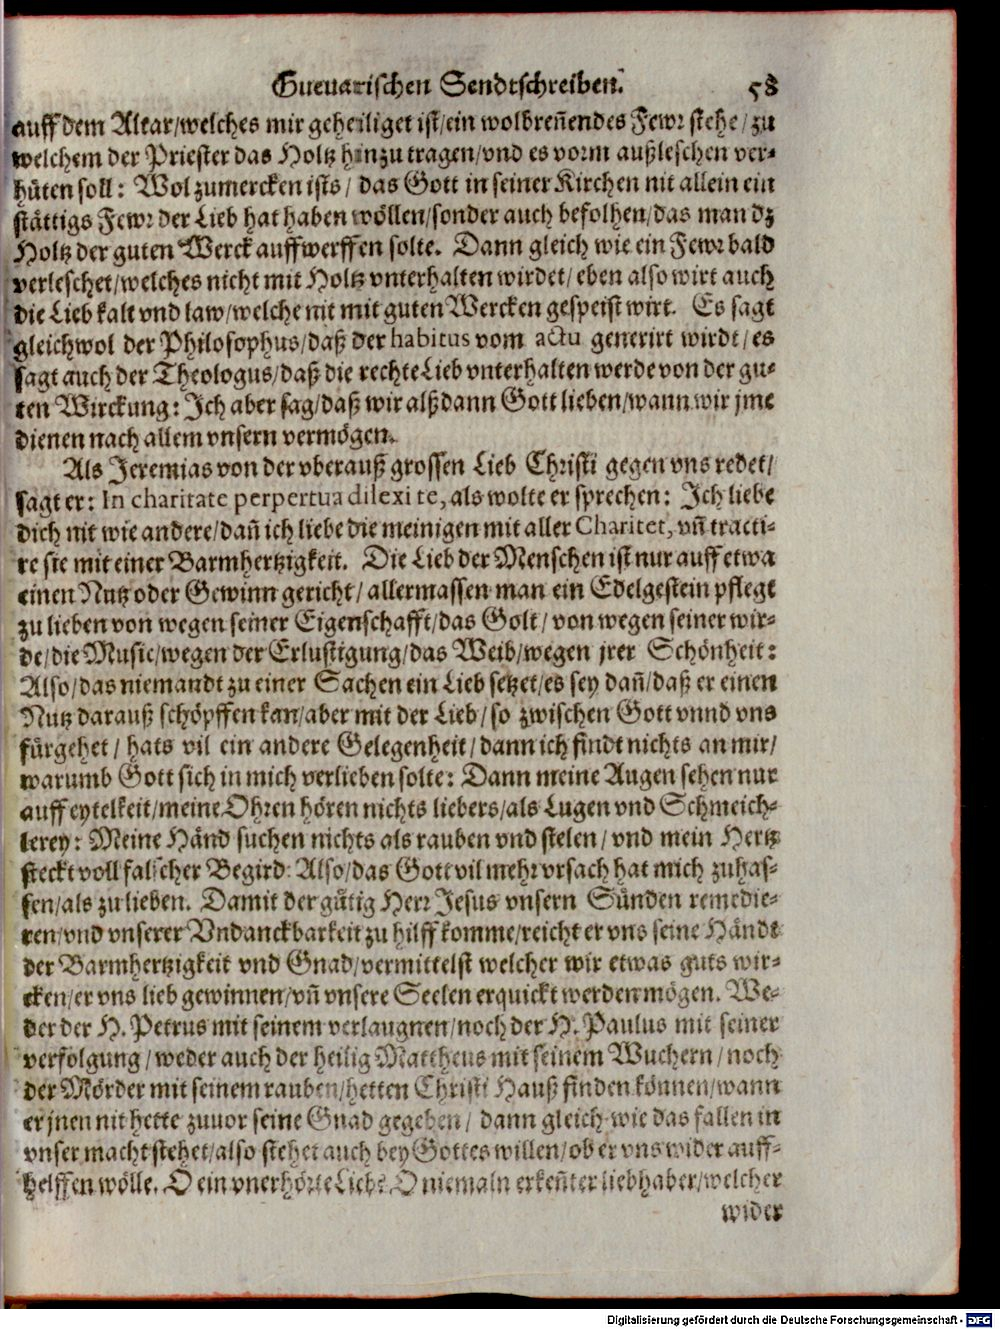 Guevarischen Sendtschreiben. 58
auff dem Altar/welches mir geheiliget ist/ein wolbreñendes Fewr stehe/zu
welchem der Priester das Holtz hinzu tragen/vnd es vorm außleschen ver-
hüten soll: Wol zumercken ists/ das Gott in seiner Kirchen nit allein ein
stättigs Fewr der Lieb hat haben wöllen/sonder auch befolhen/das man dz
Holtz der guten Werck auffwerffen solte. Dann gleich wie ein Fewr bald
verleschet/welches nicht mit Holtz vnterhalten wirdet/ eben also wirt auch
die Lieb kalt vnd law/welche nit mit guten Wercken gespeist wirt. Es sagt
gleichwol der Philosophus/daß der habitus vom actu generirt wirdt/es
sagt auch der Theologus/daß die rechte Lieb vnterhalten werde von der gu-
ten Wirckung: Ich aber sag/daß wir alß dann Gott lieben/wann wir jme
dienen nach allem vnsern vermögen.
Als Jeremias von der vberauß grossen Lieb Christi gegen vns redet/
sagt er: In charitate perpertua dilexi te, als wolte er sprechen: Ich liebe
dich nit wie andere/dañ ich liebe die meinigen mit aller Charitet, vñ tracti-
re sie mit einer Barmhertzigkeit. Die Lieb der Menschen ist nur auff etwa
einen Nutz oder Gewinn gericht/allermassen man ein Edelgestein pflegt
zu lieben von wegen seiner Eigenschafft/das Golt/ von wegen seiner wir-
de/die Music/wegen der Erlustigung/das Weib/wegen jrer Schönheit:
Also/das niemandt zu einer Sachen ein Lieb setzet/es sey dañ/daß er einen
Nutz darauß schöpffen kan/aber mit der Lieb/so zwischen Gott vnnd vns
fürgehet/ hats vil ein andere Gelegenheit/dann ich findt nichts an mir/
warumb Gott sich in mich verlieben solte: Dann meine Augen sehen nur
auff eytelkeit/meine Ohren hören nichts liebers/als Lugen vnd Schmeich-
lerey: Meine Händ suchen nichts als rauben vnd stelen/ vnd mein Hertz
steckt voll falscher Begird: Also/das Gott vil mehr vrsach hat mich zuhas-
sen/als zu lieben. Damit der gütig Herr Jesus vnsern Sünden remedie-
ren/vnd vnserer Vndanckbarkeit zu hilff komme/reicht er vns seine Händt
der Barmhertzigkeit vnd Gnad/vermittelst welcher wir etwas guts wir-
cken/er vns lieb gewinnen/vñ vnsere Seelen erquickt werden mögen. We-
der der H. Petrus mit seinem verlaugnen/noch der H. Paulus mit seiner
verfolgung/weder auch der heilig Mattheus mit seinem Wuchern/noch
der Mörder mit seinem rauben/hetten Christi Hauß finden können/wann
er jnen nit hette zuuor seine Gnad gegeben/ dann gleich wie das fallen in
vnser macht stehet/also stehet auch bey Gottes willen/ob er vns wider auff-
helffen wölle. O ein vnerhörte Liebe O niemaln erkeñter liebhaber/welcher
wider
Digitalisierung gefördert durch die Deutsche Forschungsgemeinschaft - DFG